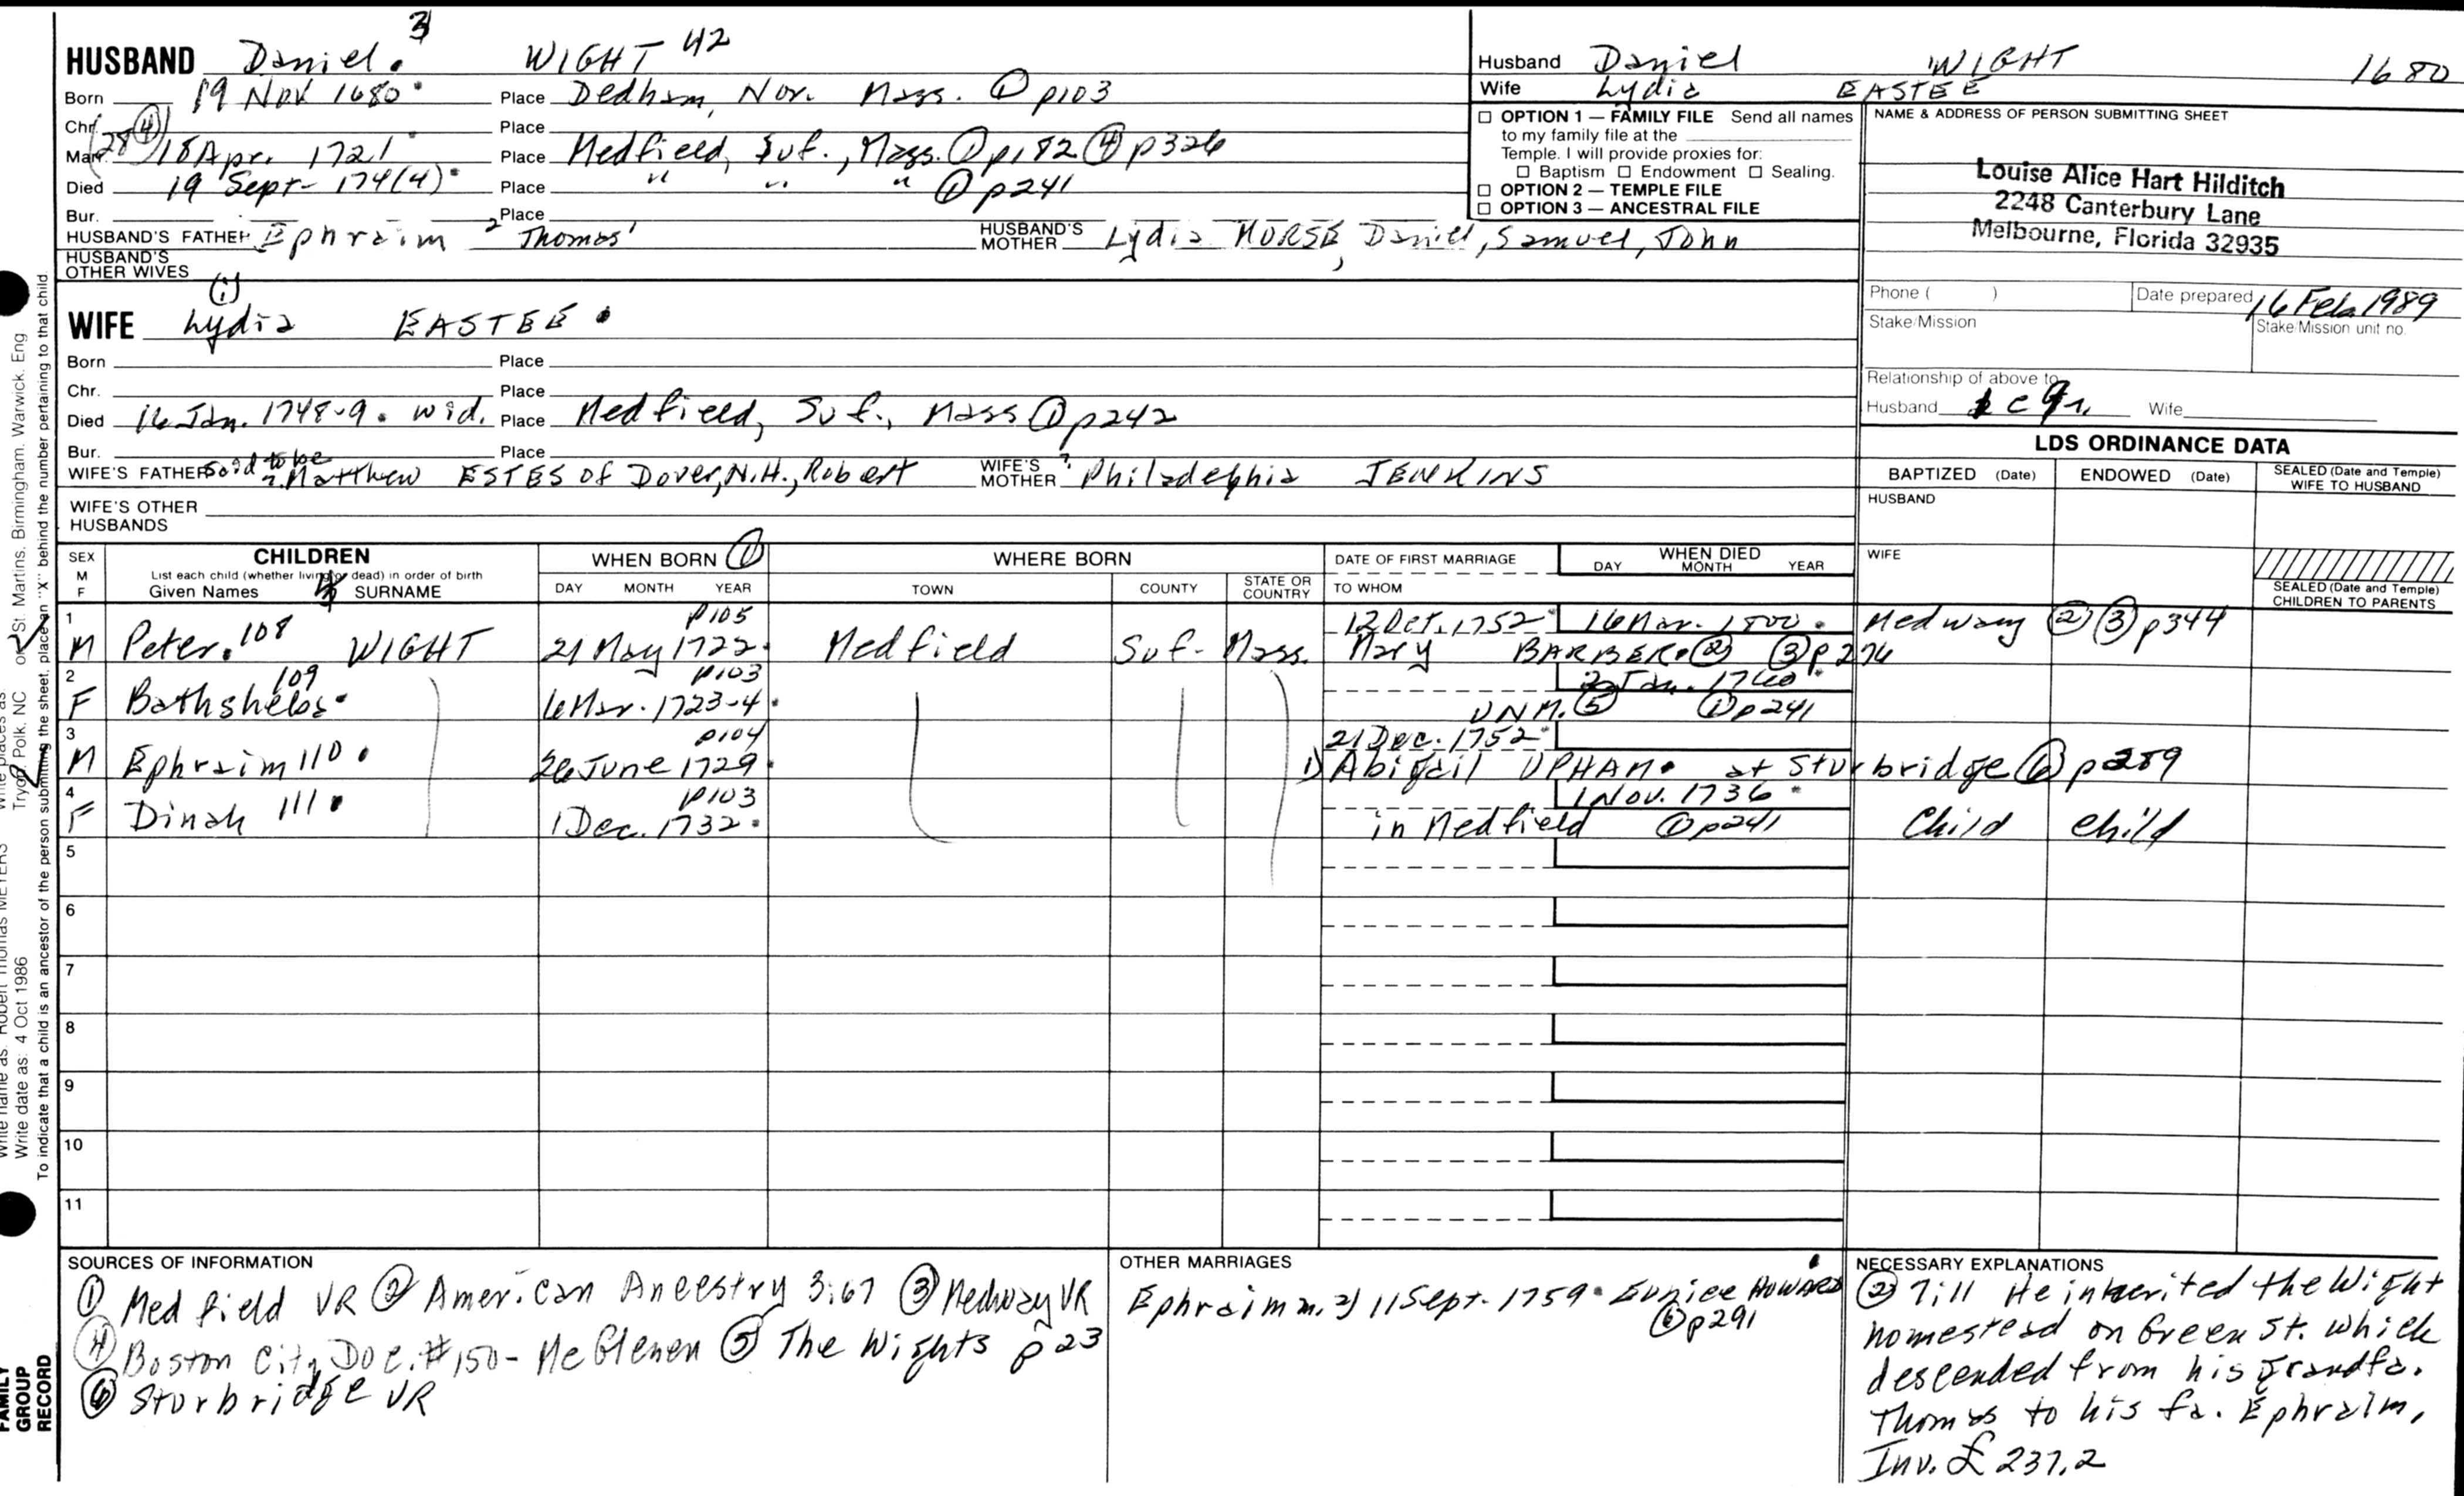 HUSBAND Daniel. 3 WIGHT 42
Born 19 Nov 1680 Place Dedham, Nor. Mass. ① p103
Chr. Place
Marr. (28 ④) 18 Apr. 1721 Place Medfield, Suf., Mass. ① p182 ④ p326
Died 19 Sept- 174(4) Place " " " ① p241
Bur. Place
HUSBAND'S FATHER Ephraim 2 Thomas' HUSBAND'S MOTHER Lydia MORSE, Daniel, Samuel, John
HUSBAND'S OTHER WIVES
(i)
WIFE Lydia EASTEE
Born Place
Chr. Place
Died 16 Jan. 1748-9. wid. Place Medfield, Suf., Mass ① p242
Bur. Place
WIFE'S FATHER said to be ? Matthew ESTES of Dover, N.H., Robert WIFE'S MOTHER ? Philadelphia JENKINS
WIFE'S OTHER HUSBANDS
Husband Daniel WIGHT 1680
Wife Lydia EASTEE
☐ OPTION 1 — FAMILY FILE Send all names
to my family file at the
Temple. I will provide proxies for:
☐ Baptism ☐ Endowment ☐ Sealing.
☐ OPTION 2 — TEMPLE FILE
☐ OPTION 3 — ANCESTRAL FILE
NAME & ADDRESS OF PERSON SUBMITTING SHEET
Louise Alice Hart Hilditch
2248 Canterbury Lane
Melbourne, Florida 32935
Phone ( ) Date prepared 16 Feb 1989
Stake/Mission Stake/Mission unit no.
Relationship of above to
Husband Wife
LDS ORDINANCE DATA
BAPTIZED (Date) ENDOWED (Date) SEALED (Date and Temple) WIFE TO HUSBAND
HUSBAND
WIFE
SEALED (Date and Temple) CHILDREN TO PARENTS
SEX M F CHILDREN WHEN BORN ① WHERE BORN DATE OF FIRST MARRIAGE WHEN DIED
List each child (whether living or dead) in order of birth
Given Names SURNAME DAY MONTH YEAR TOWN COUNTY STATE OR COUNTRY TO WHOM DAY MONTH YEAR
1 p105 12 Oct. 1752 16 Mar. 1800. Medway ② ③ p344
M Peter. 108 WIGHT 21 May 1722 Medfield Suf. Mass. Mary BARBER. ② ③ p276
2 109 p103 Jan. 1740
F Bathsheba 6 Mar. 1723-4 UNM. ⑤ ① p241
3 p104 21 Dec. 1752
M Ephraim 110 26 June 1729 1) Abigail UPHAM. at Sturbridge ⑥ p289
4 p103 1 Nov. 1736
F Dinah 111 1 Dec. 1732 in Medfield ① p241 Child child
5
6
7
8
9
10
11
SOURCES OF INFORMATION
① Medfield VR ② American Ancestry 3:67 ③ Medway VR
④ Boston City Doc. #150- McGlenen ⑤ The Wights p23
⑥ Sturbridge VR
OTHER MARRIAGES
Ephraim m. 2) 11 Sept. 1759 Eunice HOWARD
⑥ p291
NECESSARY EXPLANATIONS
② Till He inherited the Wight
homestead on Green St. which
descended from his grandfa.
Thomas to his fa. Ephraim,
Inv. £ 237.2
or St. Martins, Birmingham, Warwick, Eng
Tryon, Polk, NC
Write date as: 4 Oct 1986
To indicate that a child is an ancestor of the person submitting the sheet, place an "X" behind the number pertaining to that child.
FAMILY
GROUP
RECORD